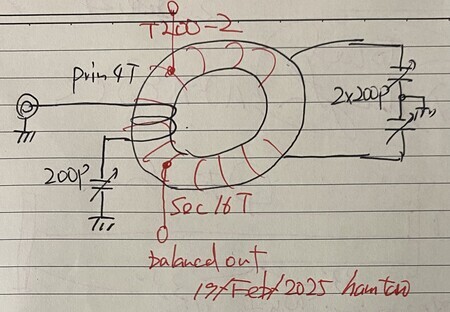 T200-2
prim 4T
2x200p
200p
Sec 16T
balanced out
19/Feb/2025 hamtaro